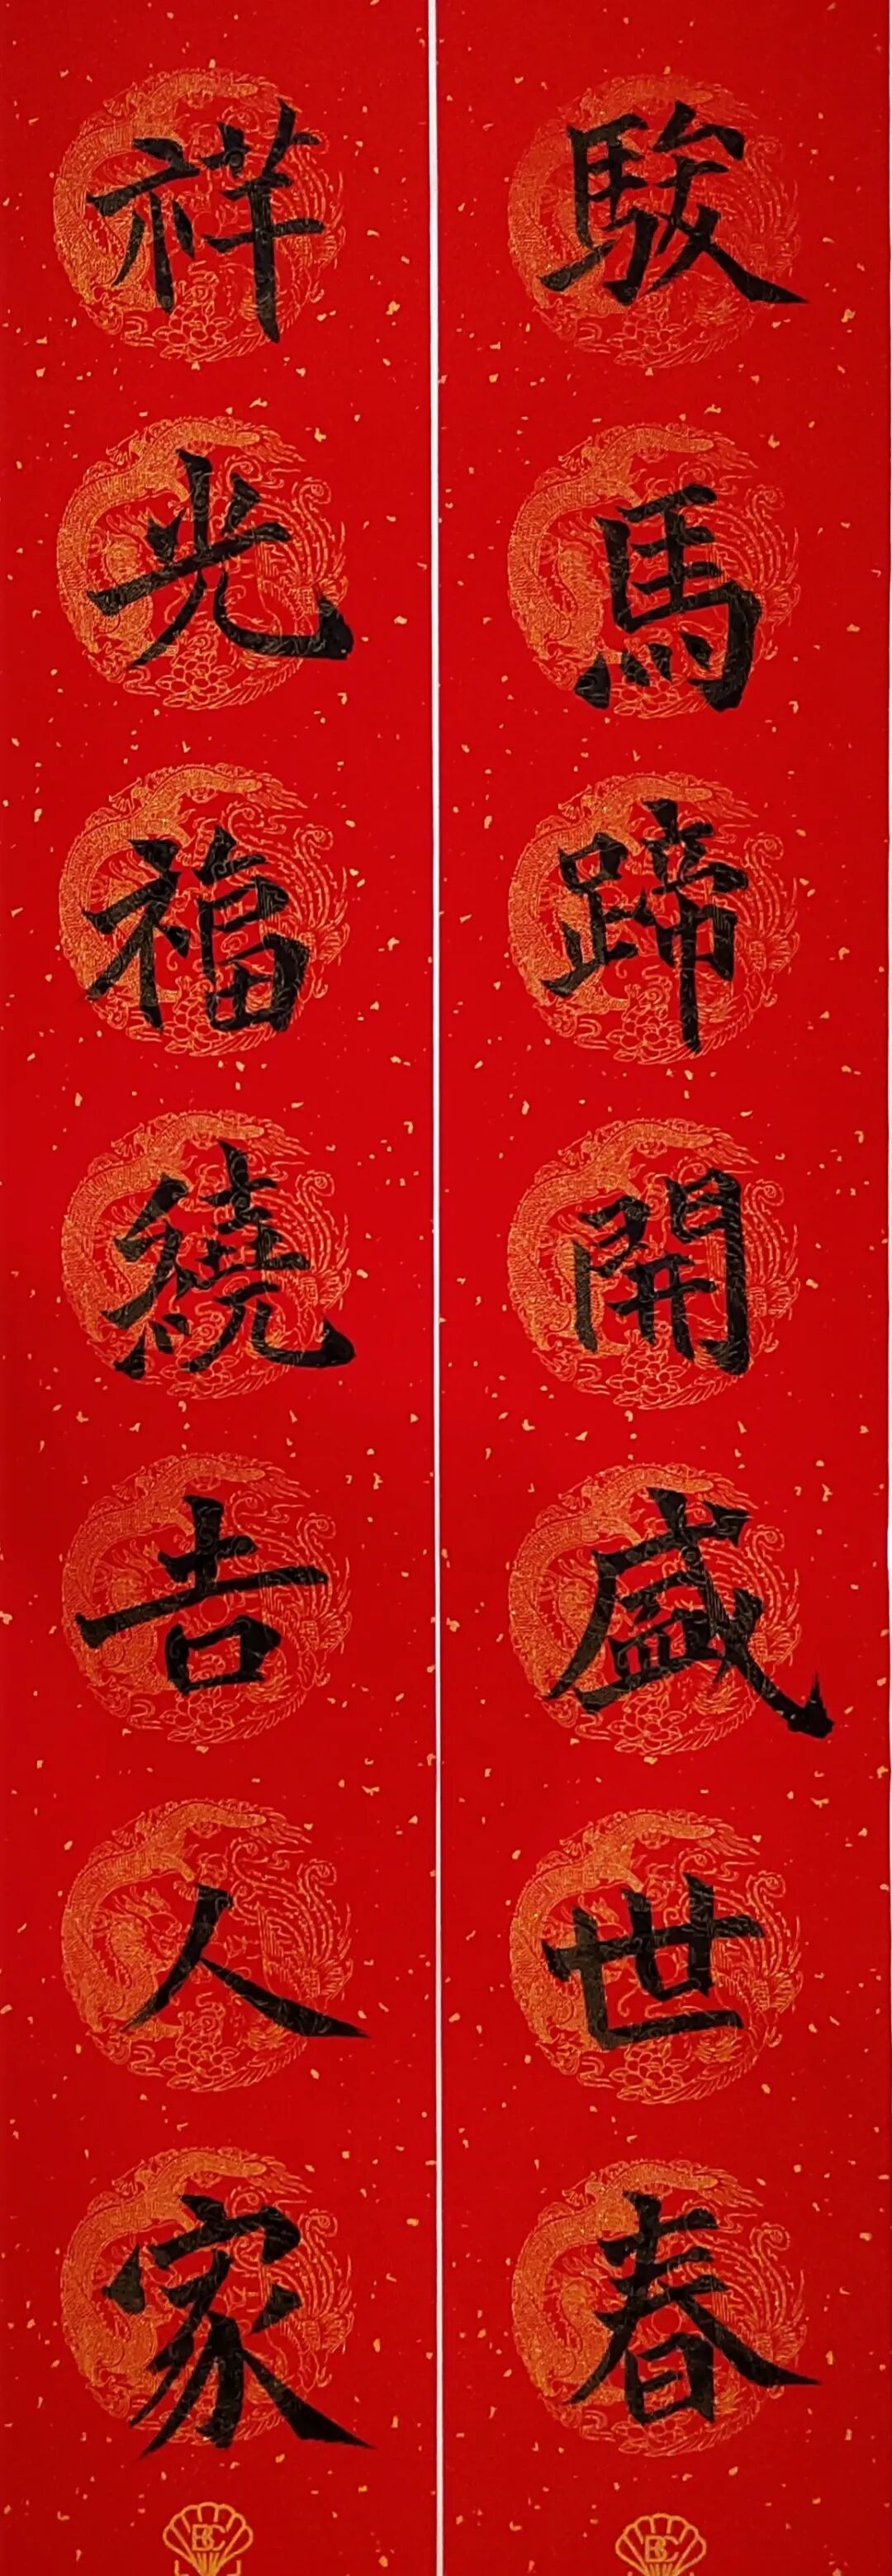 駿馬蹄開盛世春
祥光福繞吉人家
BC
BC